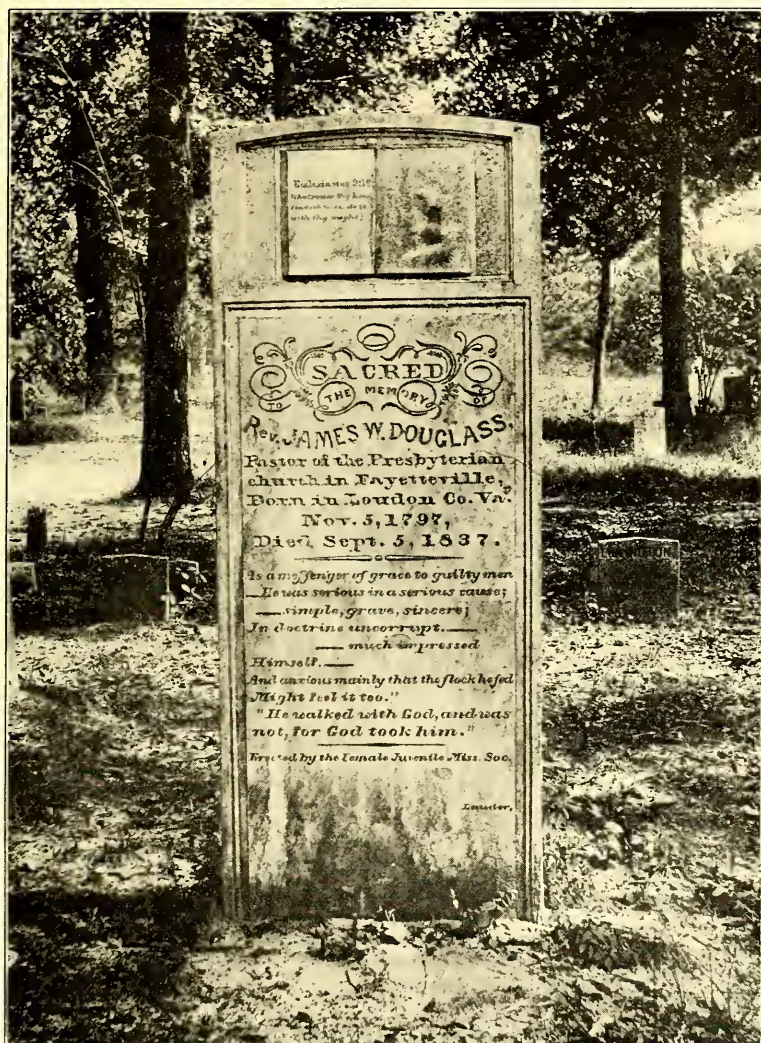 Ecclesiastes 9:10
Whatsoever thy hand
findeth to do, do it
with thy might;
SACRED
TO THE MEMORY OF
Rev. JAMES W. DOUGLASS,
Pastor of the Presbyterian
church in Fayetteville,
Born in Loudon Co. Va.
Nov. 5, 1797,
Died Sept. 5, 1837.
As a messenger of grace to guilty men
— He was serious in a serious cause;
— simple, grave, sincere;
In doctrine uncorrupt. —
— much impressed
Himself. —
And anxious mainly that the flock he fed
Might feel it too."
"He walked with God, and was
not, for God took him."
Erected by the Female Juvenile Miss. Soc.
Lauder,